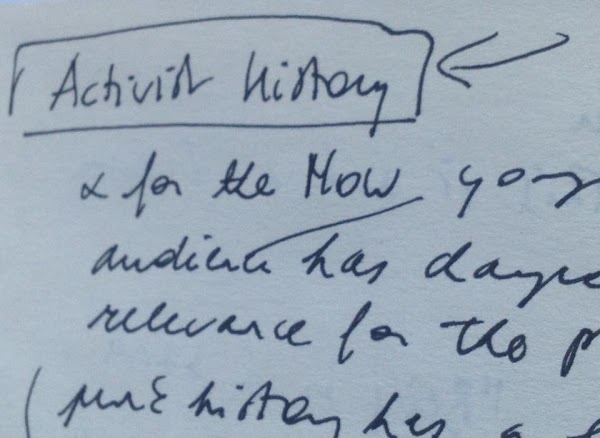 Activist history
for the Now your
audience has
relevance for the
history has a